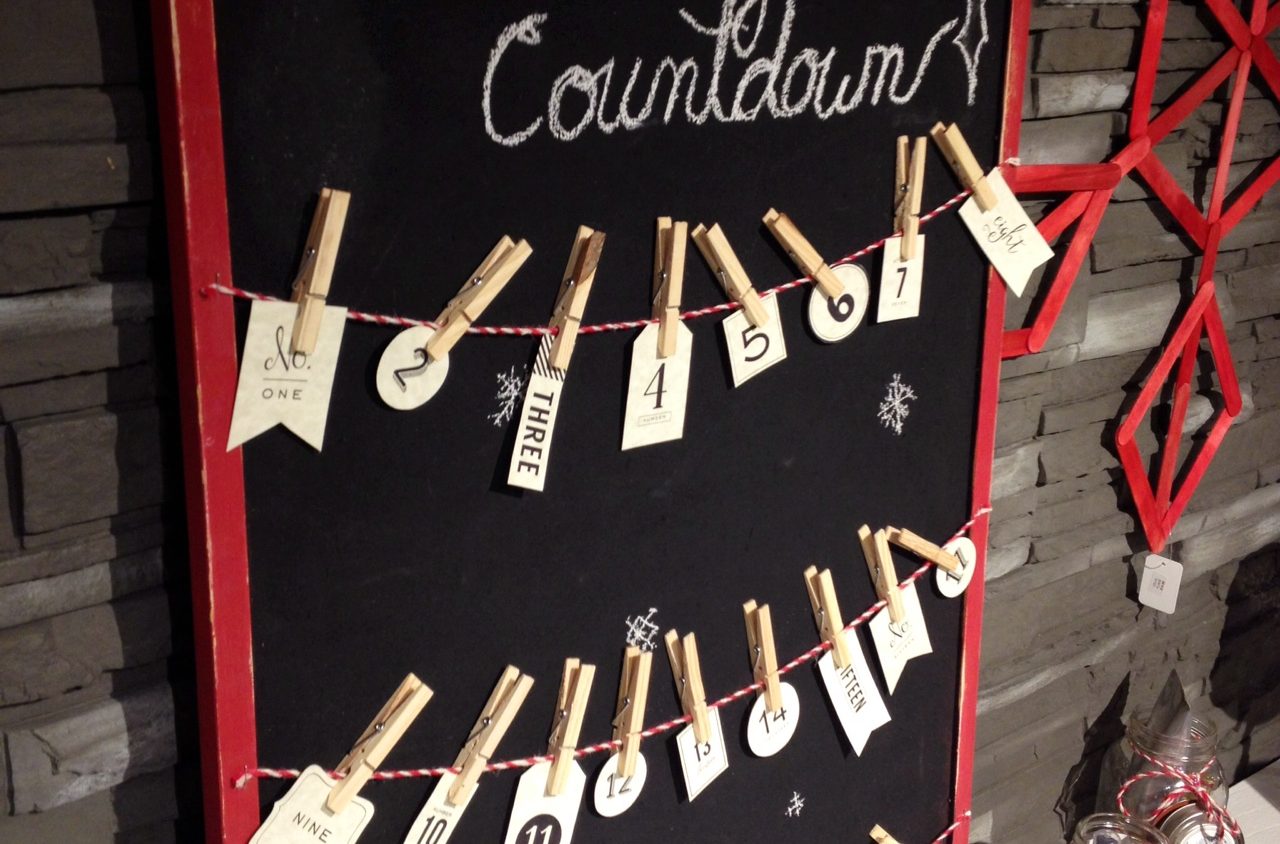 Countdown
No.
ONE
2
THREE
4
NUMBER
5
6
7
SEVEN
eight
NINE
NUMBER
10
11
12
13
14
FIFTEEN
No
SIXTEEN
17